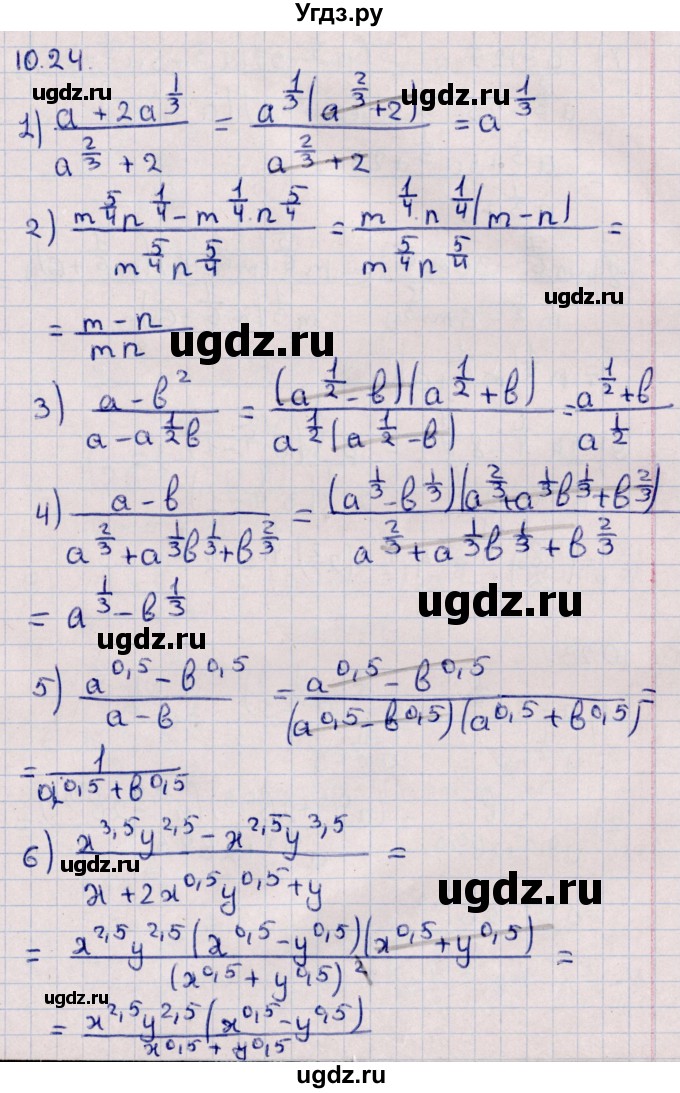 Угдз.ру
10.24.
ugdz.ru
1) (a + 2a^(1/3))/(a^(2/3) + 2) = (a^(1/3)(a^(2/3) + 2))/(a^(2/3) + 2) = a^(1/3)
ugdz.ru
2) (m^(5/4)n^(1/4) - m^(1/4)·n^(5/4))/(m^(5/4)n^(5/4)) = (m^(1/4)·n^(1/4)(m - n))/(m^(5/4)n^(5/4)) =
ugdz.ru
ugdz.ru
= (m - n)/(mn)
ugdz.ru
3) (a - в^2)/(a - a^(1/2)в) = ((a^(1/2) - в)(a^(1/2) + в))/(a^(1/2)(a^(1/2) - в)) = (a^(1/2) + в)/(a^(1/2))
4) (a - в)/(a^(2/3) + a^(1/3)в^(1/3) + в^(2/3)) = ((a^(1/3) - в^(1/3))(a^(2/3) + a^(1/3)в^(1/3) + в^(2/3)))/(a^(2/3) + a^(1/3)в^(1/3) + в^(2/3))
= a^(1/3) - в^(1/3)
ugdz.ru
ugdz.ru
5) (a^0,5 - в^0,5)/(a - в) = (a^0,5 - в^0,5)/((a^0,5 - в^0,5)(a^0,5 + в^0,5)) =
ugdz.ru
= 1/(a^0,5 + в^0,5)
6) (x^3,5y^2,5 - x^2,5y^3,5)/(x + 2x^0,5y^0,5 + y) =
ugdz.ru
ugdz.ru
= (x^2,5y^2,5(x^0,5 - y^0,5)(x^0,5 + y^0,5))/((x^0,5 + y^0,5)^2) =
ugdz.ru
= (x^2,5y^2,5(x^0,5 - y^0,5))/(x^0,5 + y^0,5)
ugdz.ru